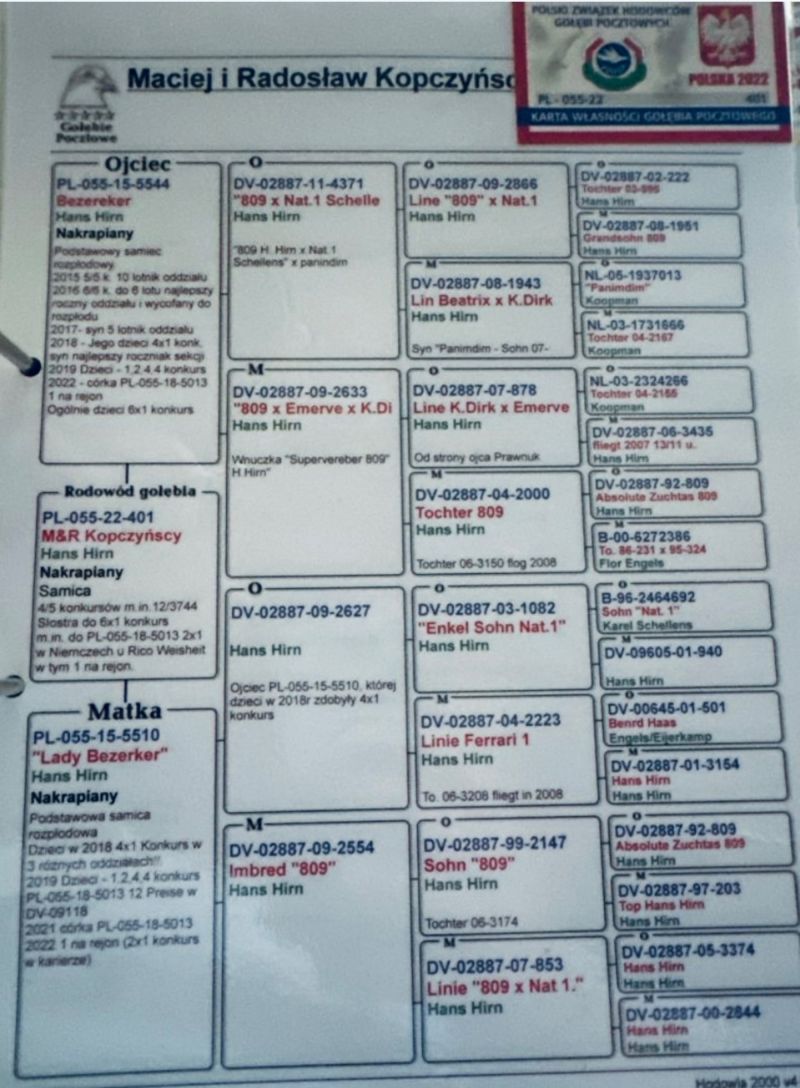 POLSKI ZWIĄZEK HODOWCÓW
GOŁĘBI POCZTOWYCH
POLSKA 2022
PL - 055-22 401
KARTA WŁASNOŚCI GOŁĘBIA POCZTOWEGO
Maciej i Radosław Kopczyńsc
Gołębie
Pocztowe
Ojciec
PL-055-15-5544
Bezereker
Hans Hirn
Nakrapiany
Podstawowy samiec
rozpłodowy
2015 5/5 k. 10 lotnik oddziału
2016 6/6 k. do 6 lotu najlepszy
roczny oddziału i wycofany do
rozpłodu
2017- syn 5 lotnik oddziału
2018 - Jego dzieci 4x1 konk.
syn najlepszy roczniak sekcji
2019 Dzieci - 1,2,4,4 konkurs
2022 - córka PL-055-18-5013
1 na rejon
Ogólnie dzieci 6x1 konkurs
Rodowód gołębia
PL-055-22-401
M&R Kopczyńscy
Hans Hirn
Nakrapiany
Samica
4/5 konkursów m.in.12/3744
Siostra do 6x1 konkurs
m.in. do PL-055-18-5013 2x1
w Niemczech u Rico Weisheit
w tym 1 na rejon.
Matka
PL-055-15-5510
"Lady Bezerker"
Hans Hirn
Nakrapiany
Podstawowa samica
rozpłodowa
Dzieci w 2018 4x1 Konkurs w
3 różnych oddziałach!!
2019 Dzieci - 1,2,4,4 konkurs
PL-055-18-5013 12 Preise w
DV-09118
2021 córka PL-055-18-5013
2022 1 na rejon (2x1 konkurs
w karierze)
O
DV-02887-11-4371
"809 x Nat.1 Schelle
Hans Hirn
"809 H. Hirn x Nat.1
Schellens" x panindim
M
DV-02887-09-2633
"809 x Emerve x K.Di
Hans Hirn
Wnuczka "Supervereber 809"
H.Hirn"
O
DV-02887-09-2627
Hans Hirn
Ojciec PL-055-15-5510, której
dzieci w 2018r zdobyły 4x1
konkurs
M
DV-02887-09-2554
Imbred "809"
Hans Hirn
O
DV-02887-09-2866
Line "809" x Nat.1
Hans Hirn
M
DV-02887-08-1943
Lin Beatrix x K.Dirk
Hans Hirn
Syn "Panimdim - Sohn 07-
O
DV-02887-07-878
Line K.Dirk x Emerve
Hans Hirn
Od strony ojca Prawnuk
M
DV-02887-04-2000
Tochter 809
Hans Hirn
Tochter 06-3150 flog 2008
O
DV-02887-03-1082
"Enkel Sohn Nat.1"
Hans Hirn
M
DV-02887-04-2223
Linie Ferrari 1
Hans Hirn
To. 06-3208 fliegt in 2008
O
DV-02887-99-2147
Sohn "809"
Hans Hirn
Tochter 06-3174
M
DV-02887-07-853
Linie "809 x Nat 1."
Hans Hirn
O
DV-02887-02-222
Hans Hirn
M
DV-02887-08-1951
Grandsohn 809
Hans Hirn
O
NL-05-1937013
"Panimdim"
Koopman
M
NL-03-1731666
Tochter 04-2167
Koopman
O
NL-03-2324266
Tochter 04-2155
Koopman
M
DV-02887-06-3435
fliegt 2007 13/11 u.
Hans Hirn
O
DV-02887-92-809
Absolute Zuchtas 809
Hans Hirn
M
B-00-6272386
To. 86-231 x 95-324
Flor Engels
O
B-96-2464692
Sohn "Nat. 1"
Karel Schellens
M
DV-09605-01-940
Hans Hirn
O
DV-00645-01-501
Benrd Haas
Engels/Eijerkamp
M
DV-02887-01-3154
Hans Hirn
Hans Hirn
O
DV-02887-92-809
Absolute Zuchtas 809
Hans Hirn
M
DV-02887-97-203
Top Hans Hirn
Hans Hirn
O
DV-02887-05-3374
Hans Hirn
Hans Hirn
M
DV-02887-00-2844
Hans Hirn
Hans Hirn
Hodowla 2000 wl